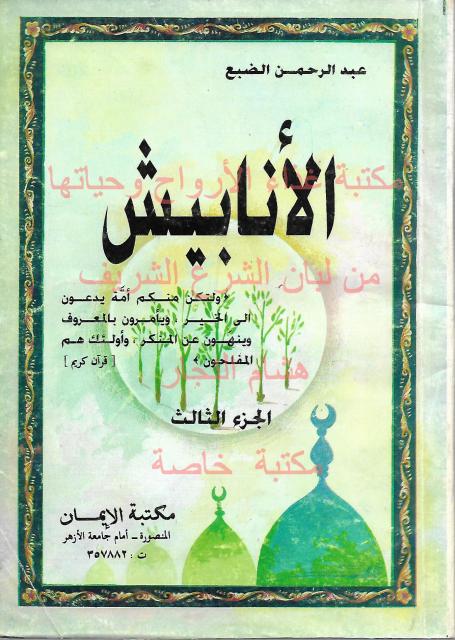 عبد الرحمن الضبع
الأنابيش
مكتبة غذاء الأرواح وحياتها
من لبان الشرع الشريف
﴿ ولتكن منكم أمة يدعون
الى الخير ، ويأمرون بالمعروف
وينهون عن المنكر ، وأولئك هم
المفلحون ﴾ [ قرآن كريم ]
هشام النجار
الجزء الثالث
مكتبة خاصة
مكتبة الإيمان
المنصورة - أمام جامعة الأزهر
ت : ٣٥٧٨٨٢